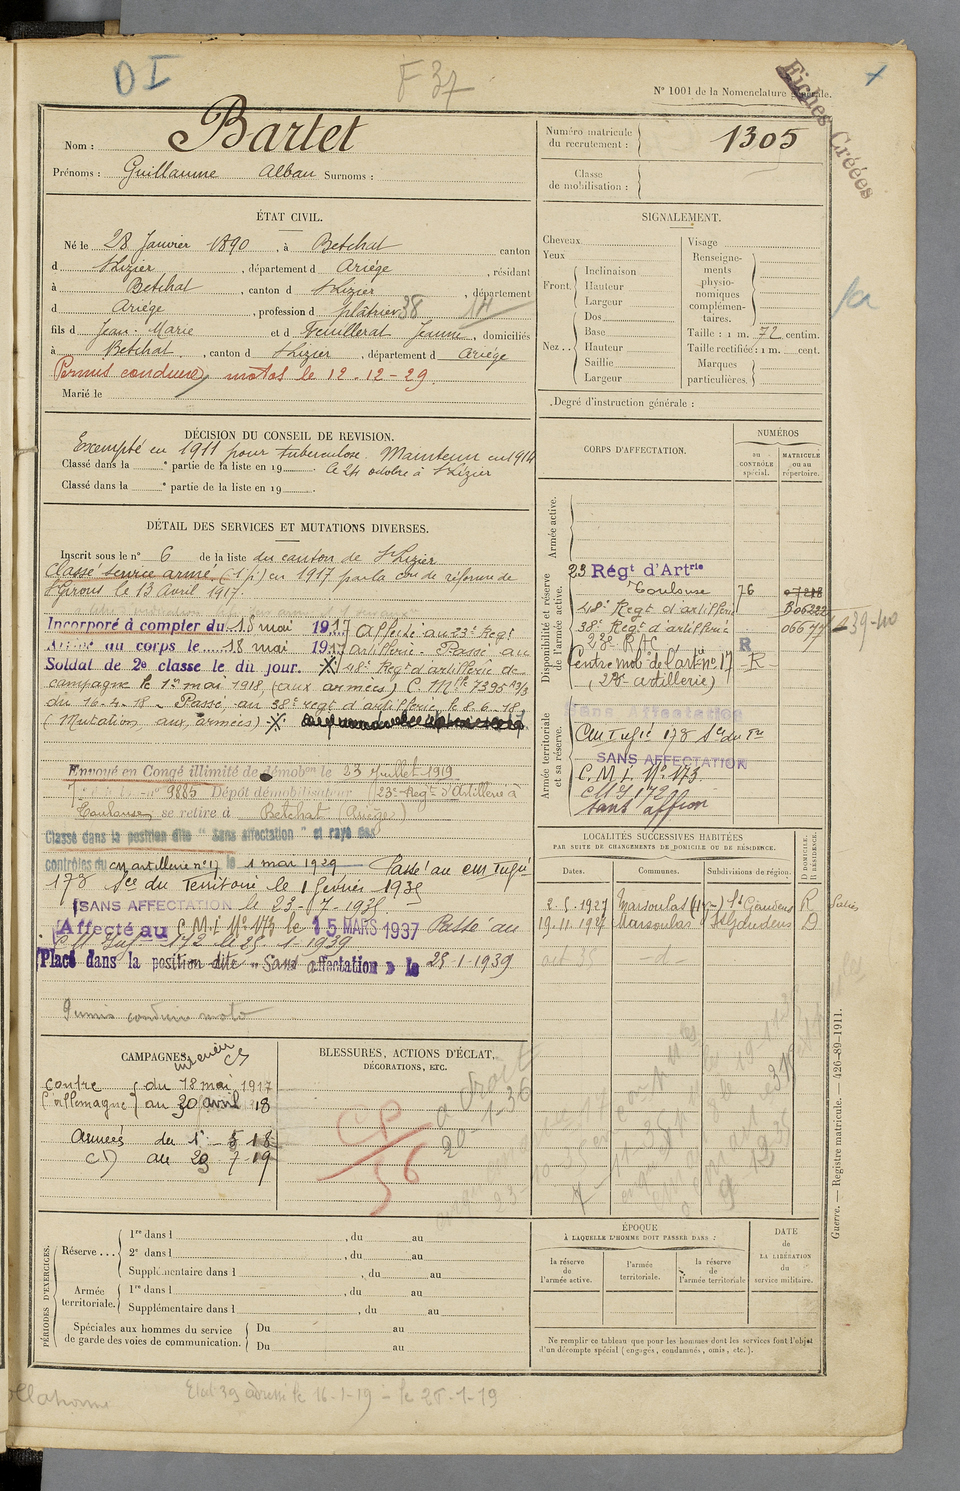 D I
F 37
N° 1001 de la Nomenclature générale.
Fiches Créées
Nom : Bartet
Prénoms : Guillaume Alban Surnoms :
Numéro matricule du recrutement : 1305
Classe de mobilisation :
ÉTAT CIVIL.
Né le 28 Janvier 1890, à Betchat canton
d St Lizier, département d Ariège, résidant
à Betchat, canton d St Lizier, département
d Ariège, profession d plâtrier 38 14
fils d Jean-Marie et d Jeanne, domiciliés
à Betchat, canton d St Lizier, département d Ariège
Permis conduire motos le 12-12-29
Marié le
SIGNALEMENT.
Cheveux
Yeux
Front. Inclinaison
Hauteur
Largeur
Nez... Dos
Base
Hauteur
Saillie
Largeur
Visage
Renseignements physionomiques complémentaires.
Taille : 1 m. 72 centim.
Taille rectifiée : 1 m. cent.
Marques particulières.
Degré d'instruction générale :
DÉCISION DU CONSEIL DE REVISION.
Exempté en 1911 pour tuberculose. Maintenu en 1914
Classé dans la e partie de la liste en 19 . le 24 octobre à St Lizier
Classé dans la e partie de la liste en 19 .
DÉTAIL DES SERVICES ET MUTATIONS DIVERSES.
Inscrit sous le n° 6 de la liste du canton de St Lizier
Classé service armé (1 p) en 1917 par la con de réforme de
St Girons le 13 Avril 1917.
Incorporé à compter du 18 mai 1917 Affecté au 23e Regt
Arrivé au corps le 18 mai 1917 artillerie. Passé au
Soldat de 2e classe le dit jour. X 48e Regt d'artillerie de
campagne le 1er mai 1918, (aux armées) C. Mlle 7395 A3/3
du 16-4-18 - Passé au 38e regt d'artillerie le 8-6-18
(Mutation aux armées) X.
Envoyé en Congé illimité de démobon le 23 Juillet 1919
n° 9885 Dépôt démobilisateur 23e Regt d'Artillerie à
Toulouse se retire à Betchat (Ariège)
Classé dans la position dite "Sans affectation" et rayé des
contrôles du cm artillerie n° 17 le 1 mai 1929 Passé au cm Tugié
178 Sce du Territoire le 1 février 1935
SANS AFFECTATION le 23-7-1935
Affecté au C.M.I. N° 173 le 15 MARS 1937 Passé au
172 le 25-1-1939
Placé dans la position dite "Sans affectation" le 25-1-1939
Permis conduire moto
CORPS D'AFFECTATION.
NUMÉROS
au CONTRÔLE spécial.
MATRICULE ou au répertoire.
Armée active.
Disponibilité et réserve de l'armée active.
23 Régt d'Artrie
Toulouse 76
48e Regt d'artillerie
38e Regt d'artillerie 06677 239-40
23e R.A.C. R
Centre mob. de l'art. n° 17 -R-
Armée territoriale et sa réserve.
Sans Affectation
cm Tugié 178 Sce du Tre
SANS AFFECTATION
C.M.I. N° 173
172
sans affon
LOCALITÉS SUCCESSIVES HABITÉES
PAR SUITE DE CHANGEMENTS DE DOMICILE OU DE RÉSIDENCE.
Dates. Communes. Subdivisions de région. D DOMICILE. R RÉSIDENCE.
2-5-1927 Marsoulas St Gaudens R Salies
19-11-1927 Marsoulas St Gaudens D
oct 35 -d-
CAMPAGNES
intérieur CS
contre l'allemagne du 18 mai 1917
au 30 avril 18
Armées du 1er 5 18
CD au 23 7-19
BLESSURES, ACTIONS D'ÉCLAT,
DÉCORATIONS, ETC.
CP/36
a droit
20-1-36
PÉRIODES D'EXERCICES.
Réserve... 1re dans l , du au
2e dans l , du au
Supplémentaire dans l , du au
Armée territoriale. 1re dans l , du au
Supplémentaire dans l , du au
Spéciales aux hommes du service de garde des voies de communication. Du au
Du au
ÉPOQUE
À LAQUELLE L'HOMME DOIT PASSER DANS :
la réserve de l'armée active.
l'armée territoriale.
la réserve de l'armée territoriale
DATE de LA LIBÉRATION du service militaire.
Ne remplir ce tableau que pour les hommes dont les services font l'objet
d'un décompte spécial (engagés, condamnés, omis, etc.).
Guerre. — Registre matricule. — 426-89-1911.
Etat 39 adressé le 16-1-19 - le 25-1-19